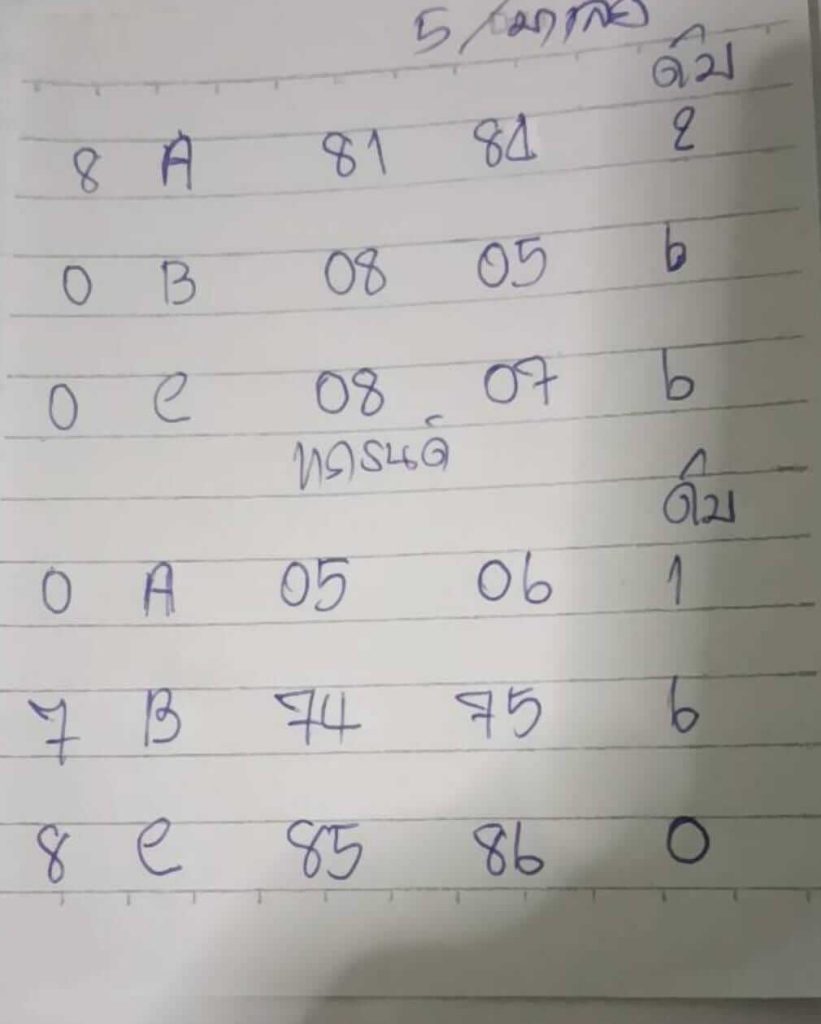 5/มาเลย์
ดิบ
8 A 81 84 2
0 B 08 05 6
0 C 08 07 6
ทดรนด์
ดิบ
0 A 05 06 1
7 B 74 75 6
8 C 85 86 0